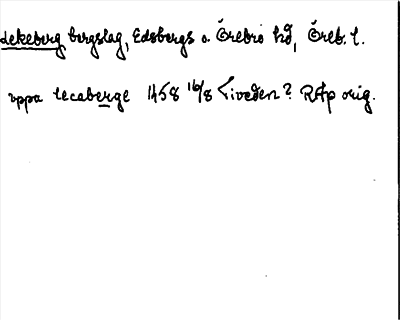 Lekeberg bergslag, Edsbergs o. Örebro hd, Öreb. l.
uppa lecaberge 1458 16/8 Tiveden? RAp orig.